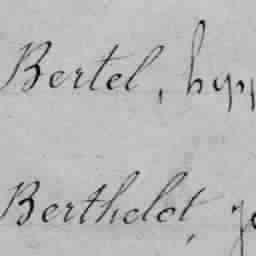 Bertel,
Berthelot,